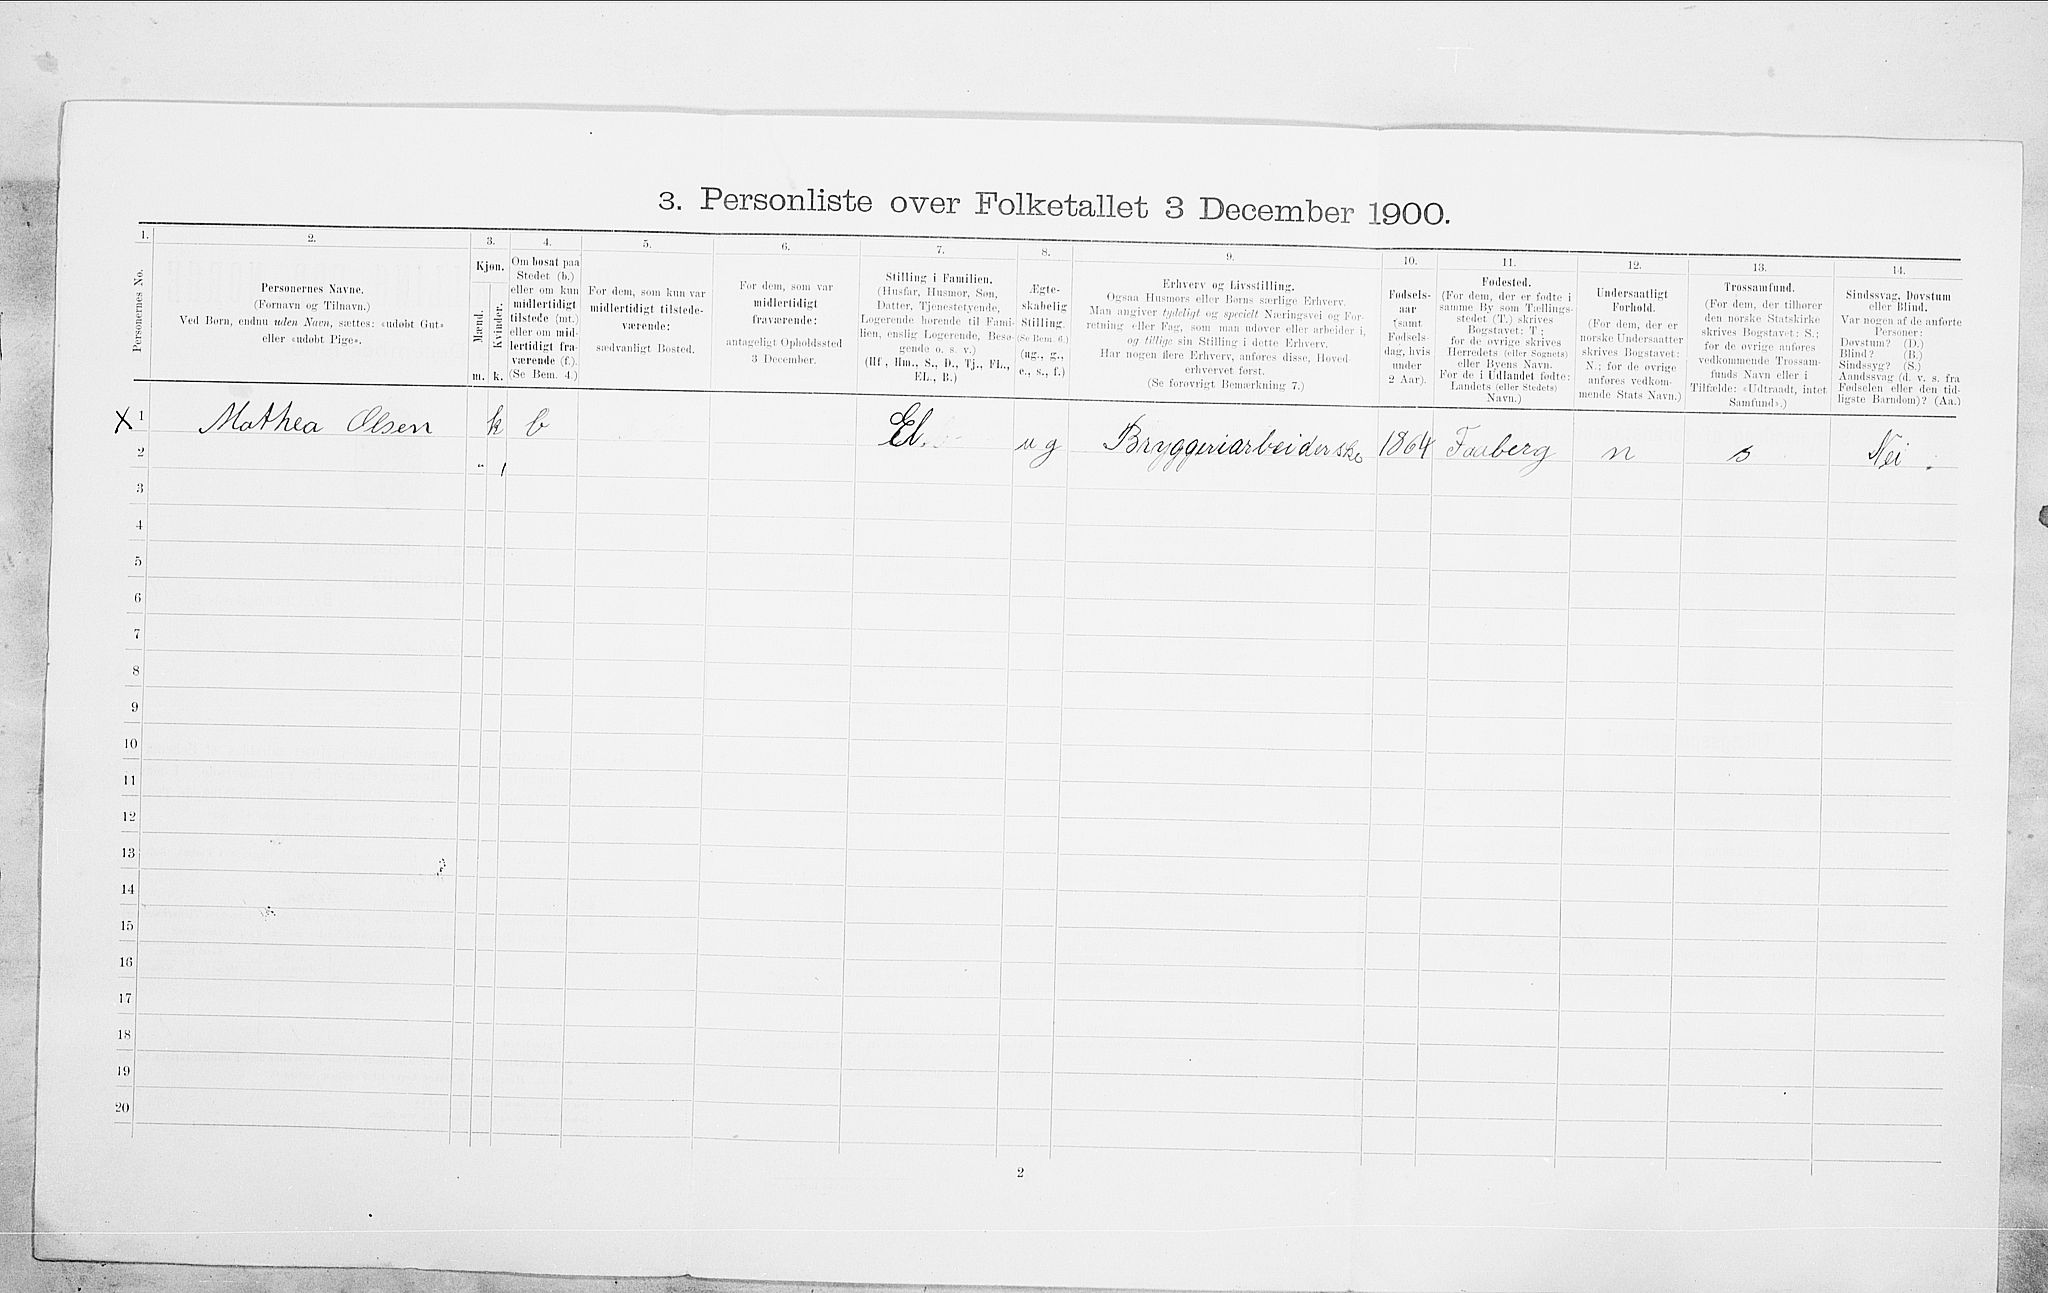 3. Personliste over Folketallet 3 December 1900.
1. 2. 3. 4. 5. 6. 7. 8. 9. 10. 11. 12. 13. 14.
Personernes No.
Personernes Navne.
(Fornavn og Tilnavn.)
Ved Børn, endnu uden Navn, sættes: «udøbt Gut»
eller «udøbt Pige».
Kjøn.
Mænd.
Kvinder.
m. k.
Om bosat paa
Stedet (b.)
eller om kun
midlertidigt
tilstede (mt.)
eller om mid-
lertidigt fra-
værende (f.).
(Se Bem. 4.)
For dem, som kun var
midlertidigt tilstede-
værende:
sædvanligt Bosted.
For dem, som var
midlertidigt
fraværende:
antageligt Opholdssted
3 December.
Stilling i Familien.
(Husfar, Husmor, Søn,
Datter, Tjenestetyende,
Logerende hørende til Fami-
lien, enslig Logerende, Besø-
gende o. s. v.)
(Hf., Hm., S., D., Tj., FL.,
EL., B.)
Ægte-
skabelig
Stilling.
(Se Bem. 6.)
(ug., g.,
e., s., f.)
Erhverv og Livsstilling.
Ogsaa Husmors eller Børns særlige Erhverv.
Man angiver tydeligt og specielt Næringsvei og For-
retning eller Fag, som man udøver eller arbeider i,
og tillige sin Stilling i dette Erhverv.
Har nogen flere Erhverv, anføres disse, Hoved-
erhvervet først.
(Se forøvrigt Bemærkning 7.)
Fødsels-
aar
(samt
Fødsels-
dag, hvis
under
2 Aar).
Fødested.
(For dem, der er fødte i
samme By som Tællings-
stedet (T.) skrives
Bogstavet: T;
for de øvrige skrives
Herredets (eller Sognets)
eller Byens Navn.
For de i Udlandet fødte:
Landets (eller Stedets)
Navn.)
Undersaatligt
Forhold.
(For dem, der er
norske Undersaatter
skrives Bogstavet:
N.; for de øvrige
anføres vedkom-
mende Stats Navn.)
Trossamfund.
(For dem, der tilhører
den norske Statskirke
skrives Bogstavet: S.;
for de øvrige anføres
vedkommende Trossam-
funds Navn eller i
Tilfælde: «Udtraadt, intet
Samfund».)
Sindssvag, Døvstum
eller Blind.
Var nogen af de anførte
Personer:
Døvstum? (D.)
Blind? (B.)
Sindssyg? (S.)
Aandssvag (d. v. s. fra
Fødselen eller den tid-
ligste Barndom)? (Aa.)
X 1 Mathea Olsen k b El. ug Bryggeriarbeiderske 1864 Faaberg n s Nei.
2
3
4
5
6
7
8
9
10
11
12
13
14
15
16
17
18
19
20
2